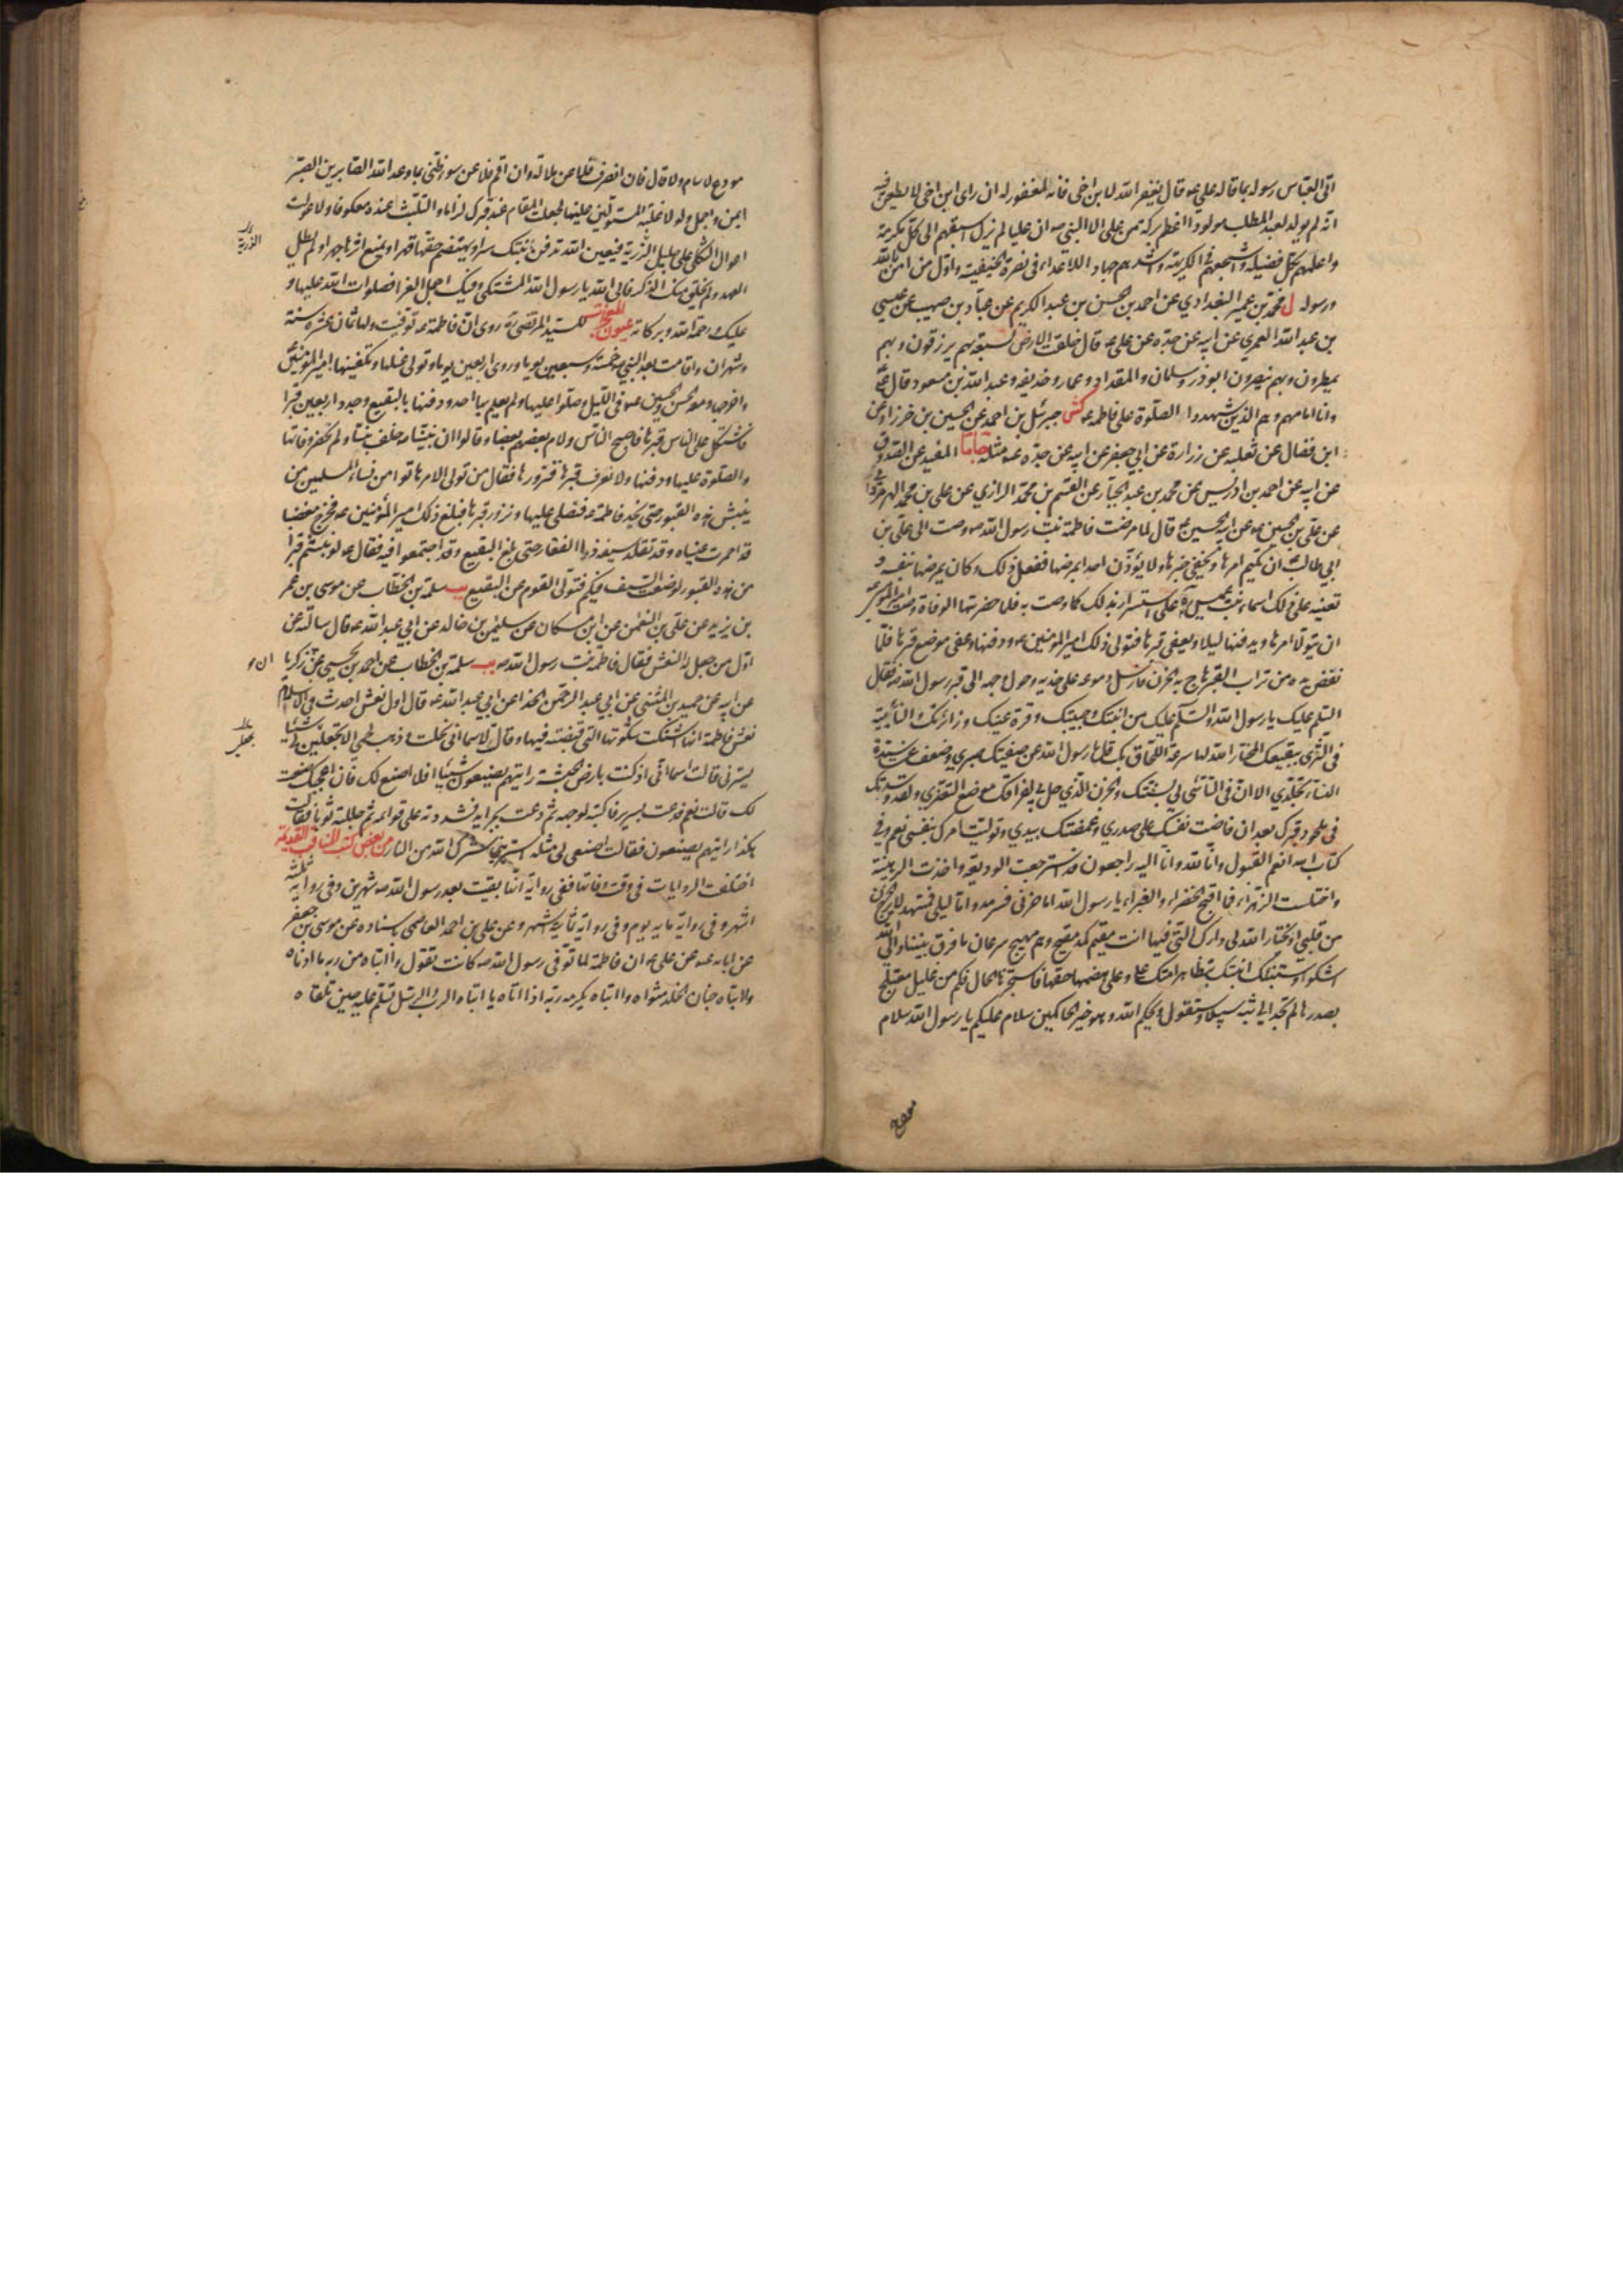 اتى العباس رسوله بما قاله علي عه قال يغفر الله لابن اخي فانه لمغفور له ان راى ابن اخي لا يطعن فيه
انه لم يولد لعبد المطلب مولود اعظم بركة من علي الا النبي صه ان عليا لم يزل اسبقهم الى كل مكرمة
واعلمهم بكل فضيلة واشجعهم في الكريهة واشدهم جهادا للاعداء في نصرة الحنيفية واول من امن بالله
ورسوله ل محمد بن عمير البغدادي عن احمد بن الحسن بن عبد الكريم عن عباد بن صهيب عن عيسى
بن عبد الله العمري عن ابيه عن جده عن علي عه قال خلقت الارض لسبعة بهم يرزقون وبهم
يمطرون وبهم ينصرون ابو ذر وسلمان والمقداد وعمار وحذيفه وعبد الله بن مسعود قال علي عه
وانا امامهم وهم الذين شهدوا الصلوة على فاطمه عه كش جبرئيل بن احمد عن الحسين بن خرزاد عن
ابن فضال عن ثعلبه عن زرارة عن ابي جعفر عن ابيه عن جده عه مثله جا ما المفيد عن الصدوق
عن ابيه عن احمد بن ادريس عن محمد بن عبد الجبار عن القسم بن محمد الرازي عن علي بن محمد الهرمزداني
عن علي بن الحسين عه عن ابيه الحسين عه قال لما مرضت فاطمة بنت رسول الله صه وصت الى علي بن
ابي طالب ان يكتم امرها ويخفي خبرها ولا يؤذن احدا بمرضها ففعل ذلك وكان يمرضها بنفسه و
تعينه على ذلك اسماء بنت عميس ره على استسرار بذلك كما وصت به فلما حضرتها الوفاة وصت امير المؤمنين عه
ان يتولا امرها ويدفنها ليلا ويعفي قبرها فتولى ذلك امير المؤمنين عه ودفنها وعفى موضع قبرها فلما
نفض يده من تراب القبر هاج به الحزن فارسل دموعه على خديه وحول وجهه الى قبر رسول الله صه فقال
السلم عليك يا رسول الله والسلم عليك من ابنتك وحبيبتك وقرة عينك وزائرتك والثابتة
في الثرى ببقيعك المختار الله لها سرعة اللحاق بك قل يا رسول الله عن صفيتك صبري وضعف عن سيدة
النساء تجلدي الا ان في التاسي لي بسنتك والحزن الذي حل بي لفراقك موضع التعزي ولقد وسدتك
في ملحود قبرك بعد ان فاضت نفسك على صدري وغمضتك بيدي وتوليت امرك بنفسي نعم وفي
كتاب الله انعم القبول وانا لله وانا اليه راجعون قد استرجعت الوديعه واخذت الرهينة
واختلست الزهراء فما اقبح الخضراء والغبراء يا رسول الله اما حزني فسرمد واما ليلي فمسهد لا يبرح الحزن
من قلبي او يختار الله لي دارك التي فيها انت مقيم كمد مقيح وهم مهيج سرعان ما فرق بيننا والى الله
اشكو وستنبئك ابنتك بتظاهر امتك علي وعلى هضمها حقها فاستخبرها الحال فكم من غليل معتلج
بصدرها لم تجد الى بثه سبيلا وستقول ويحكم الله وهو خير الحاكمين سلام عليكم يا رسول الله سلام
مودع
مودع لا سام ولا قال فان انصرف فلا عن ملالة وان اقم فلا عن سوء ظني بما وعد الله الصابرين الصبر
ايمن واجمل ولولا غلبة المستولين علينا لجعلت المقام عند قبرك لزاما والتلبث عنده معكوفا ولاعولت
اعوال الثكلى على جليل الرزية فبعين الله تدفن ابنتك سرا ويهتضم حقها قهرا ويمنع ارثها جهرا ولم يطل
العهد ولم يخلق منك الذكر فالى الله يا رسول الله المشتكى وفيك اجمل العزا فصلوات الله عليها و
عليك ورحمة الله وبركاته عيون المعجزات للسيد المرتضى ره روى ان فاطمه عه توفيت ولها ثمان عشره سنة
وشهران واقامت بعد النبي صه خمسة وسبعين يوما وروى اربعين يوما وتولى غسلها وتكفينها امير المؤمنين
واخرجها ومعه الحسن والحسين عه في الليل وصلوا عليها ولم يعلم بها احد ودفنها بالبقيع وجدد اربعين قبرا
فاشتكل على الناس قبرها فاصبح الناس ولام بعضهم بعضا وقالوا ان نبينا صه خلف بنتا ولم نحضر وفاتها
والصلوة عليها ودفنها ولا نعرف قبرها فنزورها فقال من تولى الامر هاتوا من نساء المسلمين من
ينبش هذه القبور حتى نجد فاطمة عه فنصلي عليها ونزور قبرها فبلغ ذلك امير المؤمنين عه فخرج مغضبا
قد احمرت عيناه وقد تقلد سيفه ذا الفقار حتى بلغ البقيع وقد اجتمعوا فيه فقال عه لو نبشتم قبرا
من هذه القبور لوضعت السيف فيكم فتولى القوم عن البقيع يب سلمة بن الخطاب عن موسى بن عمر
بن يزيد عن علي بن النعمن عن ابن مسكان عن سليمن بن خالد عن ابي عبد الله عه قال سالته عن
اول من جعل له النعش فقال فاطمة بنت رسول الله صه يب سلمة بن الخطاب عن احمد بن يحيى بن زكريا
عن ابيه عن حميد بن المثنى عن ابي عبد الرحمن الحذا عن ابي عبد الله عه قال اول نعش احدث في الاسلام
نعش فاطمة انها اشتكت شكوتها التي قبضت فيها وقالت لاسما اني نحلت وذهب لحمي الا تجعلين لي شيئا
يسترني قالت اسما اني اذ كنت بارض الحبشة رايتهم يصنعون شيئا افلا اصنع لك فان اعجبك صنعت
لك قالت نعم فدعت بسرير فاكبته لوجهه ثم دعت بجرايد فشدته على قوائمه ثم جللته ثوبا فقالت
هكذا رايتهم يصنعون فقالت اصنعي لي مثله استريني سترك الله من النار من بعض كتب المناقب القديمة
اختلفت الروايات في وقت وفاتها ففي رواية انها بقيت بعد رسول الله صه شهرين وفي رواية ثلثة
اشهر وفي رواية ماية يوم وفي رواية ثمانية اشهر وعن علي بن احمد العاصمي باسناده عن موسى بن جعفر
عن ابائه عه عن علي عه ان فاطمة لما توفي رسول الله صه كانت تقول وا ابتاه من ربه ما ادناه
وا ابتاه جنان الخلد مثواه وا ابتاه يكرمه ربه اذا اتاه يا ابتاه الرب والرسل تسلم عليه حين تلقاه